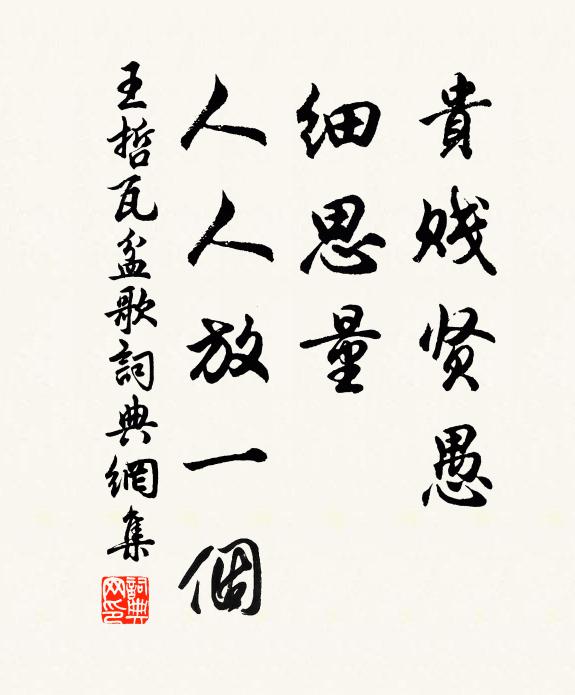 貴贱贤愚
细思量
人人放一個
王哲瓦盆歌詞典網集
詞典网印